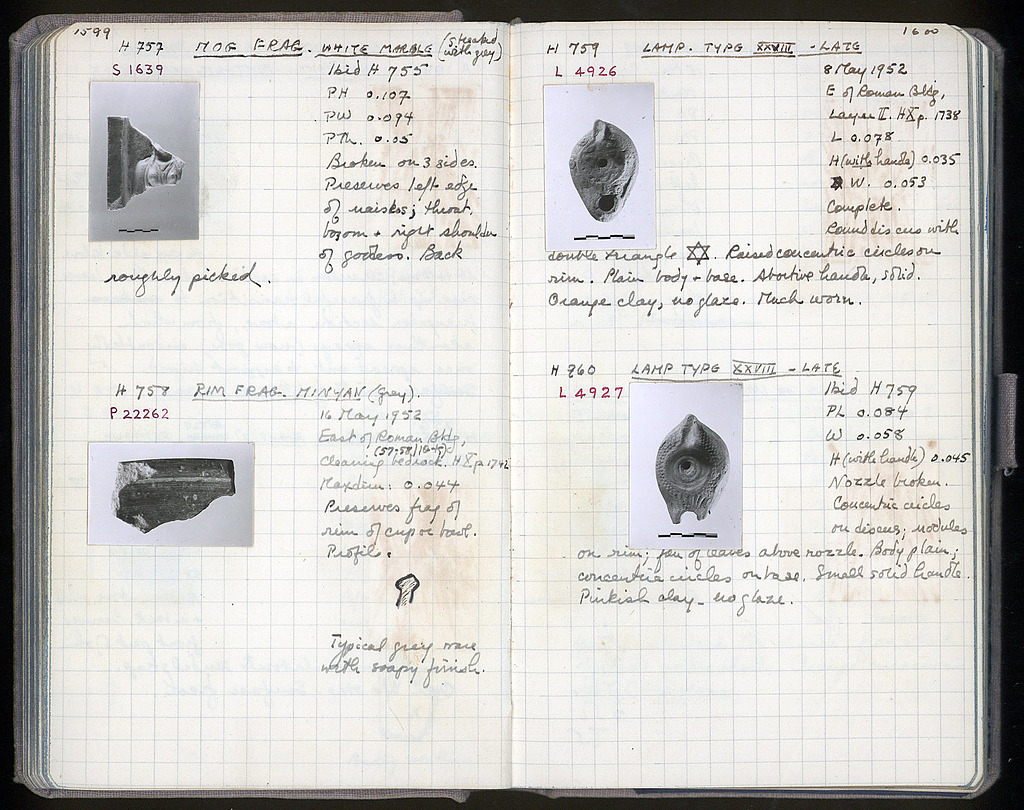 1599
H 757 MOG FRAG. WHITE MARBLE (streaked with grey)
S 1639
Ibid H 755
PH 0.107
PW 0.094
PTh. 0.05
Broken on 3 sides.
Preserves left edge
of naiskos; throat,
bozom + right shoulder
of goddess. Back
roughly picked.
H 758 RIM FRAG. MINYAN (grey).
P 22262
16 May 1952
East of Roman Bldg,
(57-58/18-15)
Cleaning bedrock. H X p 1742
Maxdim: 0.044
Preserves frag of
rim of cup or bowl.
Profile.
Typical grey ware
with soapy finish.
1600
H 759 LAMP. TYPE XXVIII - LATE
L 4926
8 May 1952
E of Roman Bldg,
Layer II. H X p. 1738
L 0.078
H (with handle) 0.035
W. 0.053
Complete.
Round discus with
double triangle ✡. Raised concentric circles on
rim. Plain body + base. Abortive handle, solid.
Orange clay, no glaze. Much worn.
H 760 LAMP TYPE XXVIII - LATE
L 4927
Ibid H 759
PL 0.084
W 0.058
H (with handle) 0.045
Nozzle broken.
Concentric circles
on discus; nodules
on rim; fan of leaves above nozzle. Body plain;
concentric circles on base. Small solid handle.
Pinkish clay - no glaze.